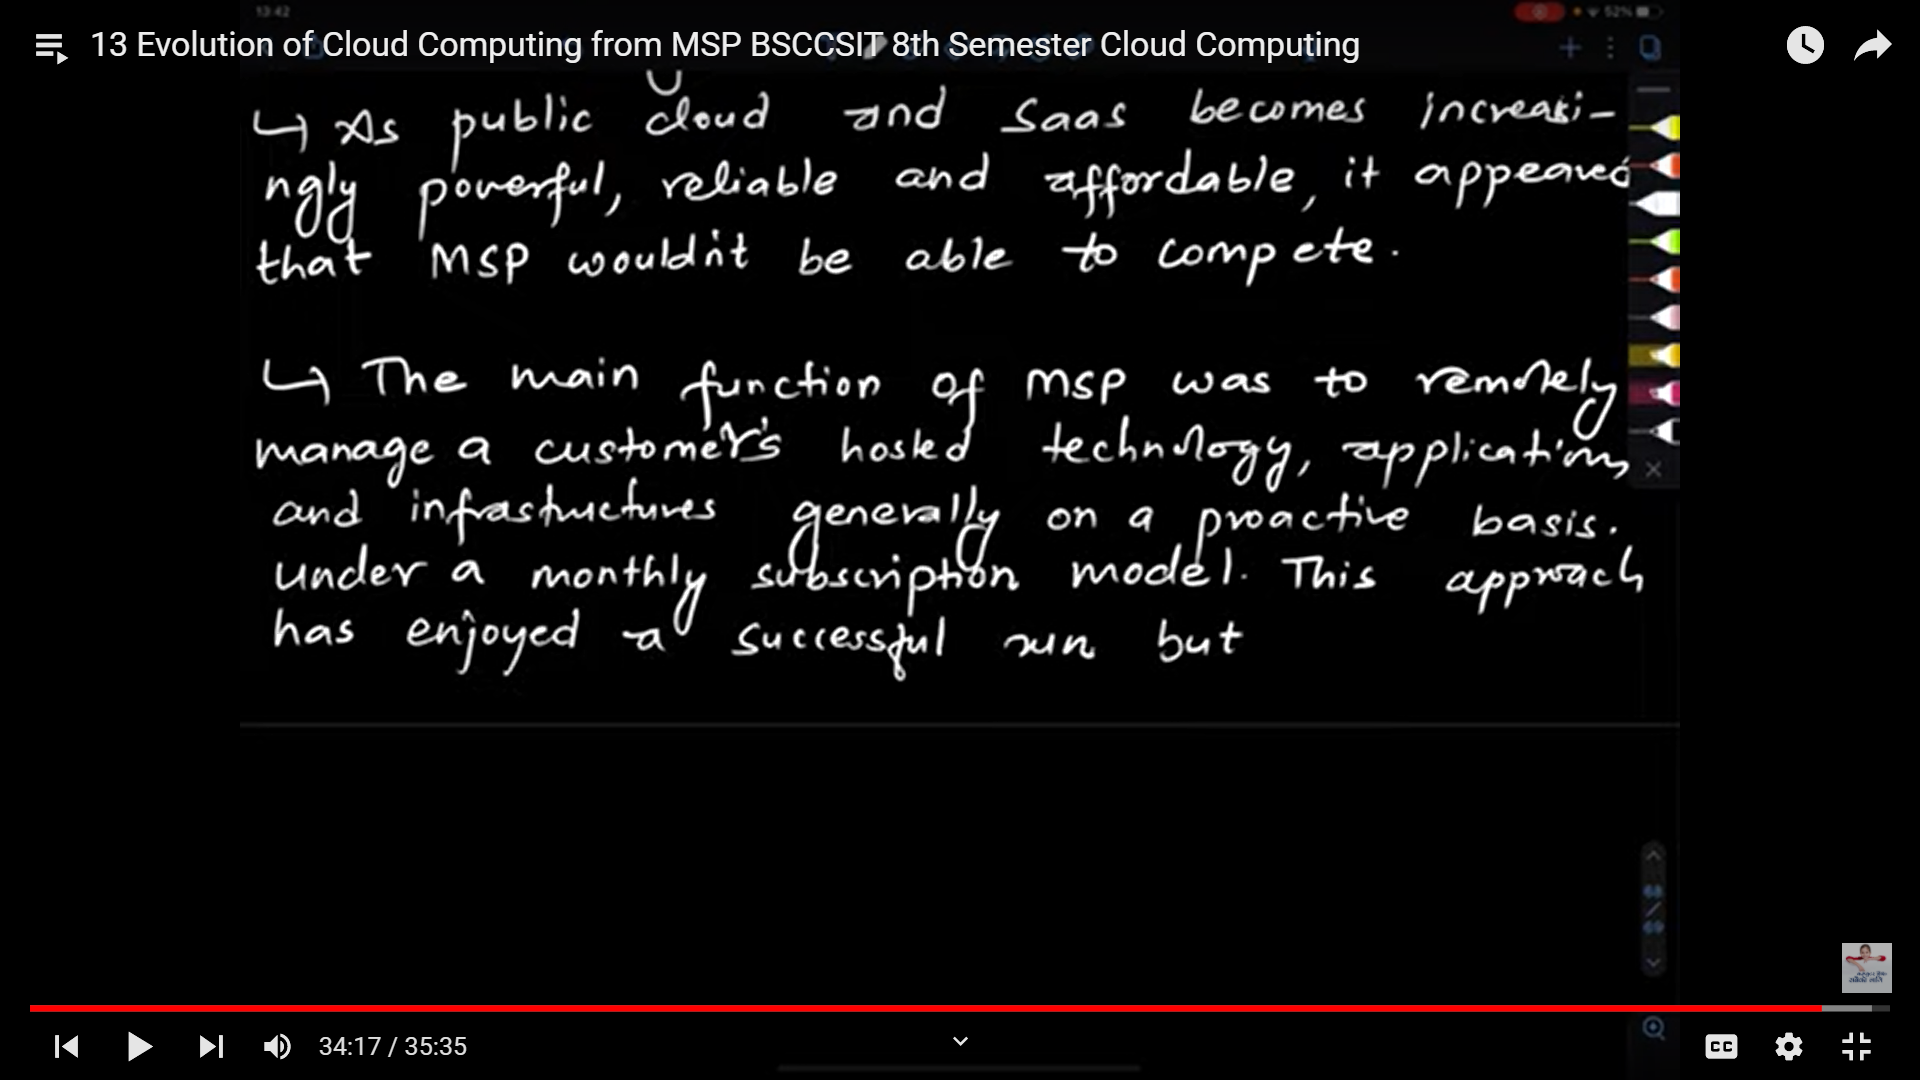 13:42
52%
13 Evolution of Cloud Computing from MSP BSCCSIT 8th Semester Cloud Computing
↳ As public cloud and Saas becomes increasi-
ngly powerful, reliable and affordable, it appeared
that MSP wouldn't be able to compete.
↳ The main function of MSP was to remotely
manage a customer's hosted technology, applications
and infrastuctures generally on a proactive basis.
Under a monthly subscription model. This approach
has enjoyed a successful run but
34:17 / 35:35
CC